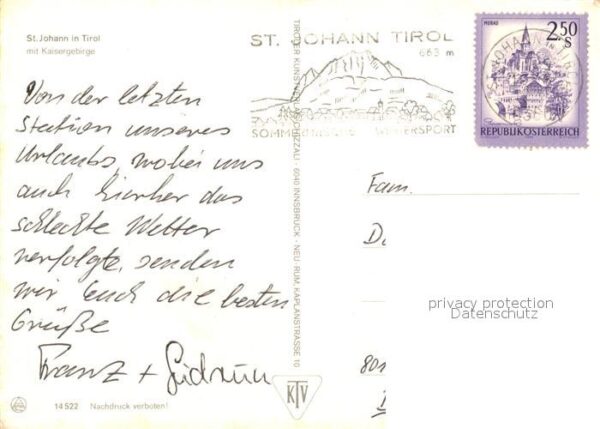 St. Johann in Tirol
mit Kaisergebirge
Von der letzten
Station unseres
Urlaubs, wobei uns
auch hierher das
schlechte Wetter
verfolgte, senden
wir Euch die besten
Grüße
Franz + Gudrun
14522 Nachdruck verboten!
TIROLER KUNSTVERLAG CHIZZALI · 6040 INNSBRUCK - NEU-RUM, KAPLANSTRASSE 10
KTV
ST. JOHANN TIROL
663 m
WINTERSPORT
MURAU
2.50
S
REPUBLIK ÖSTERREICH
Fam.
D
801
privacy protection
Datenschutz